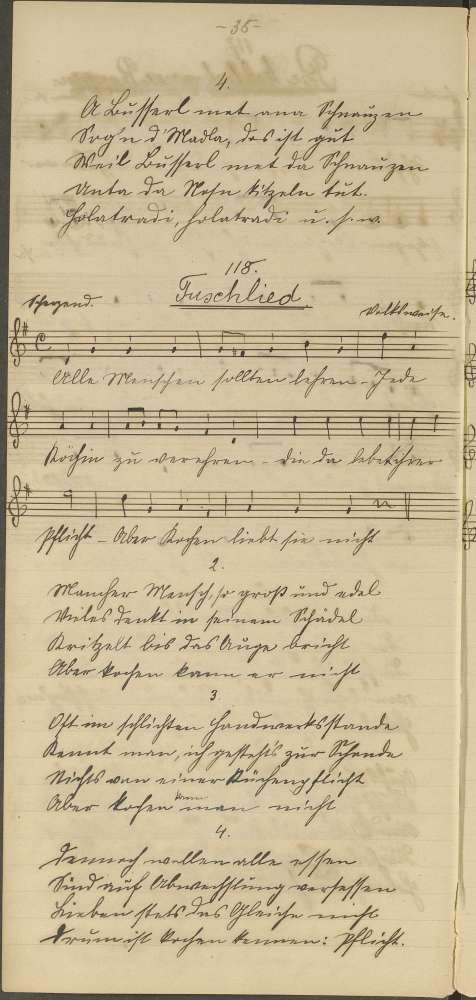 -35-
4.
A Bußerl met ana Schnauzen
Sog'n d'Madla, des ist gut
Weil Bußerl met da Schnauzen
Unta da Nosn kitzeln tut.
Holatradi, holatradi u. s. w.
118.
Tuschlied.
Volksweise.
Alle Menschen sollten lehren - Jede
Köchin zu verehren - die da lebet ihrer
Pflicht - Aber Kochen liebt sie nicht
2.
Mancher Mensch, so groß und edel
Vieles denkt in seinem Schädel
Kritzelt bis das Auge bricht
Aber kochen kann er nicht
3.
Oft im schlichten Handwerksstande
Kennt man, ich gesteh's zur Schande
Nichts von einer Küchenpflicht
Aber kochen kann man nicht
4.
Dennoch wollen alle essen
Sind auf Abwechslung versessen
Lieben stets das Gleiche nicht
Drum ist kochen kennen: Pflicht.